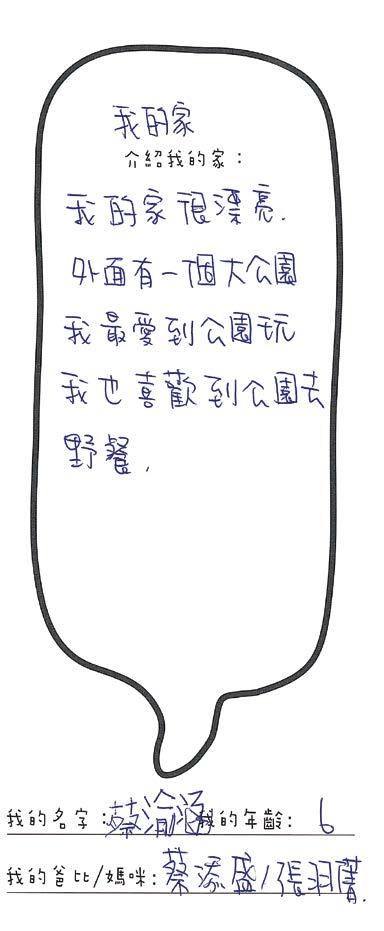 我的家
介紹我的家：
我的家很漂亮.
外面有一個大公園
我最愛到公園玩
我也喜歡到公園去
野餐.
我的名字：蔡渝涵 我的年齡：6
我的爸比/媽咪：蔡添盛/張羽